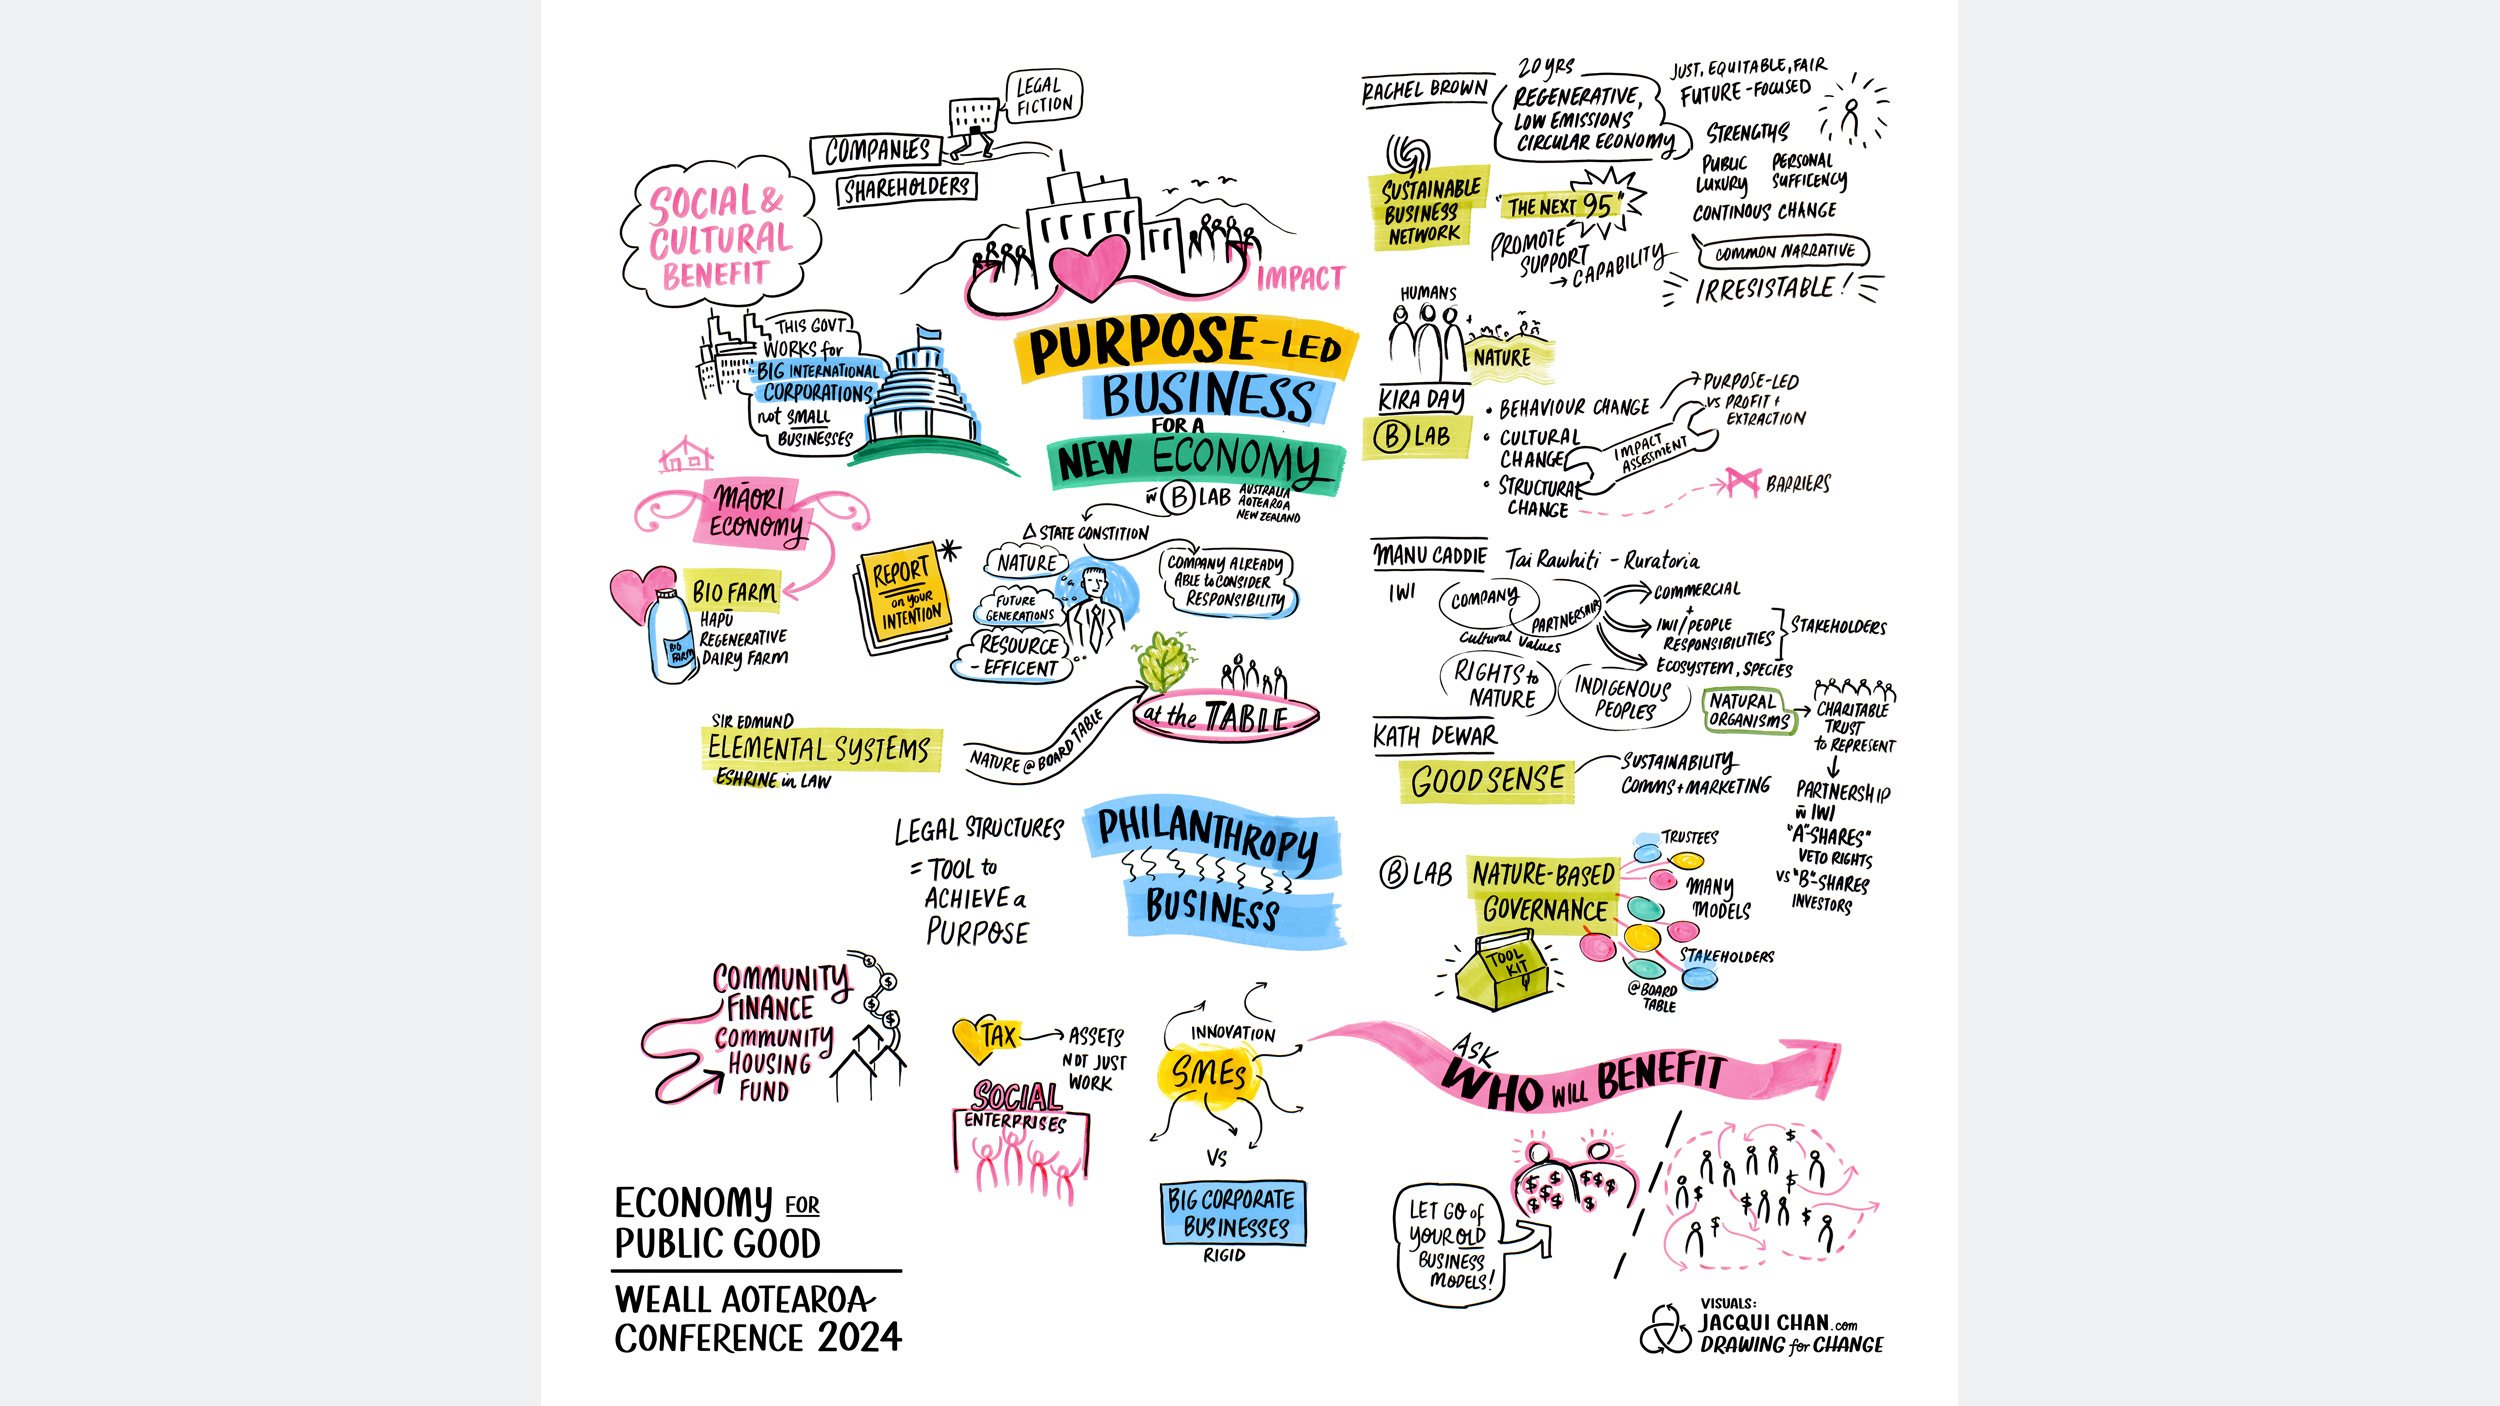 LEGAL
FICTION
COMPANIES
SHAREHOLDERS
SOCIAL &
CULTURAL
BENEFIT
IMPACT
THIS GOVT
WORKS for
BIG INTERNATIONAL
CORPORATIONS
not SMALL
BUSINESSES
PURPOSE-LED
BUSINESS
FOR A
NEW ECONOMY
w̄ B LAB
AUSTRALIA
AOTEAROA
NEW ZEALAND
MĀORI
ECONOMY
BIO FARM
HAPŪ
REGENERATIVE
DAIRY FARM
BIO
FARM
REPORT
on YOUR
INTENTION
Δ STATE CONSTITION
NATURE
FUTURE
GENERATIONS
RESOURCE
- EFFICENT
COMPANY ALREADY
ABLE to CONSIDER
RESPONSIBILITY
SIR EDMUND
ELEMENTAL SYSTEMS
ESHRINE in LAW
NATURE @ BOARD TABLE
at the TABLE
LEGAL STRUCTURES
= TOOL to
ACHIEVE a
PURPOSE
PHILANTHROPY
BUSINESS
COMMUNITY
FINANCE
COMMUNITY
HOUSING
FUND
TAX
ASSETS
NOT JUST
WORK
SOCIAL
ENTERPRISES
INNOVATION
SMEs
VS
BIG CORPORATE
BUSINESSES
RIGID
ECONOMY FOR
PUBLIC GOOD
WEALL AOTEAROA
CONFERENCE 2024
RACHEL BROWN
20 YRS
REGENERATIVE,
LOW EMISSIONS
CIRCULAR ECONOMY
JUST, EQUITABLE, FAIR
FUTURE-FOCUSED
STRENGTHS
PUBLIC
LUXURY
PERSONAL
SUFFICENCY
CONTINOUS CHANGE
COMMON NARRATIVE
IRRESISTABLE!
SUSTAINABLE
BUSINESS
NETWORK
"THE NEXT 95"
PROMOTE
SUPPORT
→ CAPABILITY
HUMANS
+
NATURE
KIRA DAY
B LAB
• BEHAVIOUR CHANGE
• CULTURAL
CHANGE
• STRUCTURAL
CHANGE
IMPACT
ASSESSMENT
PURPOSE-LED
vs PROFIT +
EXTRACTION
BARRIERS
MANU CADDIE
Tai Rawhiti - Ruratoria
IWI
COMPANY
PARTNERSHIPS
Cultural Values
COMMERCIAL
+
IWI/PEOPLE
RESPONSIBILITIES
ECOSYSTEM, SPECIES
STAKEHOLDERS
RIGHTS to
NATURE
INDIGENOUS
PEOPLES
NATURAL
ORGANISMS
CHARITABLE
TRUST
to REPRESENT
PARTNERSHIP
w̄ IWI
"A"-SHARES"
VETO RIGHTS
VS "B"-SHARES
INVESTORS
KATH DEWAR
GOOD SENSE
SUSTAINABILITY
COMMS + MARKETING
B LAB
NATURE-BASED
GOVERNANCE
TOOL
KIT
TRUSTEES
MANY
MODELS
STAKEHOLDERS
@ BOARD
TABLE
ASK
WHO WILL BENEFIT
LET GO of
YOUR OLD
BUSINESS
MODELS!
VISUALS:
JACQUI CHAN.com
DRAWING for CHANGE